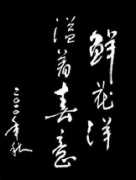 鲜花洋
溢着春意
二〇〇〇年秋